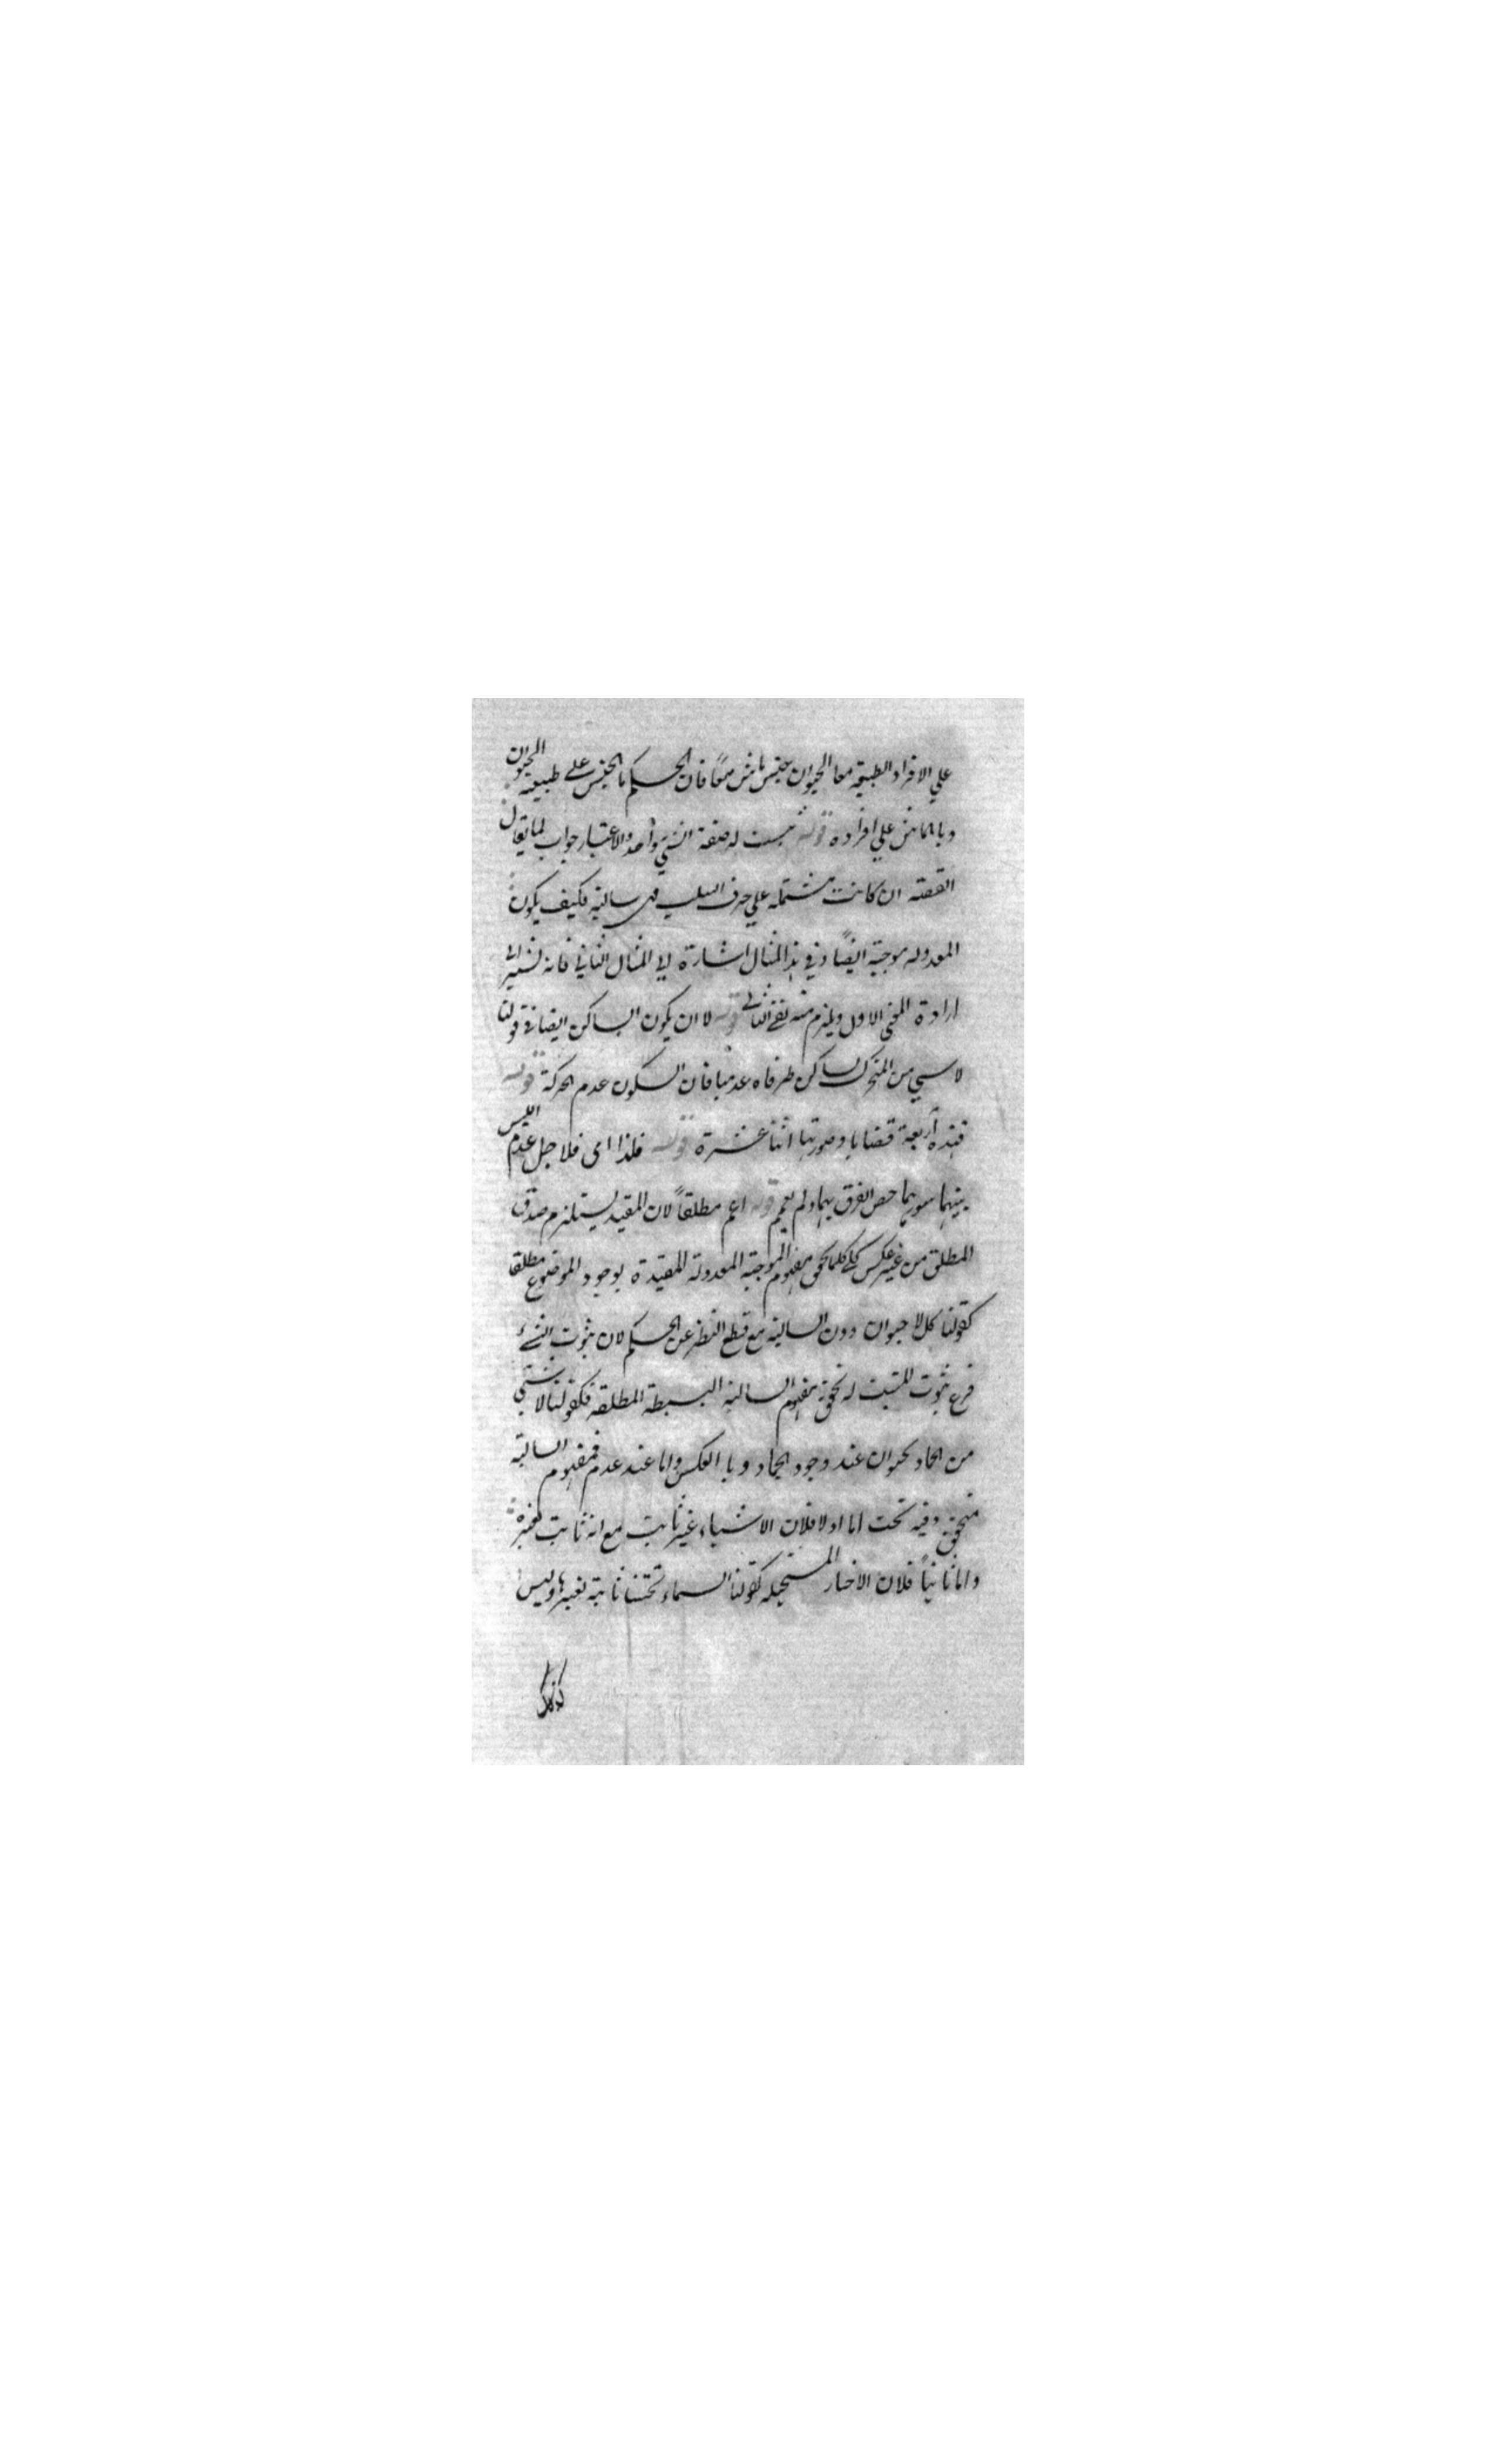 علي الافراد الطبيعة معا الحيوان جنس ماش معًا فان الحكم بالجنس على طبيعة الحيوان
وبالماش علي افراده قوله ليست له صفة الشيئ واحد والاعتبار جواب لما يقال
القضيه ان كانت مشتمله علي حرف السلب فهى سالبة فكيف يكون
المعدوله موجبة ايضًا وفي هذا المثال اشارة الي المثال الثاني فانه نشير الى
ارادة المعنى الاول ويلزم منه نفى الثاني قوله لا ان يكون الساكن ايضا في قولنا
لا شيي من المتحرك بساكن طرفاه عدميا فان السكون عدم الحركة قوله
فهذه أربعة قضايا وصورتها اثنا عشرة قوله فلذا اى فلاجل عدم اللبس
بينهما سويهما خص الفرق بهما ولم يعمم قوله اعم مطلقاً لان المقيد يستلزم صدق
المطلق من غير عكس كلي كلما تحقق مفهوم الموجبة المعدولة المقيدة بوجود الموضوع مطلقا
كقولنا كل لا حيوان دون السالبة مع قطع النظر عن الحكم لان ثبوت الشئ
فرع ثبوت المثبت له تحقق مفهوم السالبة البسيطة المطلقه فكقولنا لا شيى
من الجماد بحيوان عند وجود الجماد وبا العكس واما عند عدم فمفهوم السالبة
متحقق وفيه بحث اما اولا فلان الاشياء غير ثابت مع انه ثابت لغيره
واما ثانياً فلان الاخبار المستحيله كقولنا السماء تحتنا ثابتة لغيرها وليس